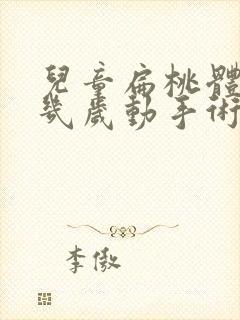 兒童扁桃體
幾歲動手術
李傲